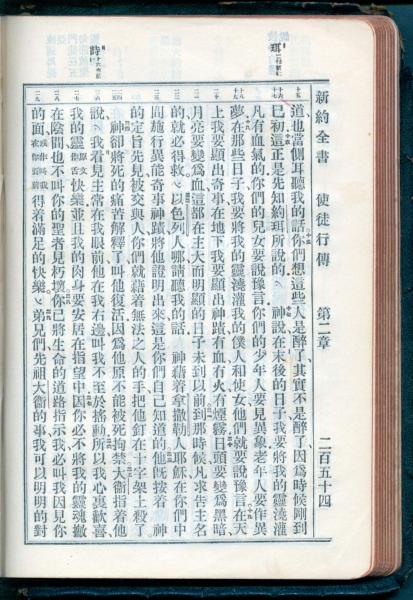 新約全書 使徒行傳 第二章 二百五十四
道也當側耳聽我的話你們想這些人是醉了其實不是醉了因爲時候剛到
巳初這正是先知約珥所說的 神說在末後的日子我要將我的靈澆灌
凡有血氣的你們的兒女要說豫言你們的少年人要見異象老年人要作異
夢在那些日子我要將我的靈澆灌我的僕人和使女他們就要說豫言在天
上我要顯出奇事在地下我要顯出神蹟有血有火有煙霧日頭要變爲黑暗
月亮要變爲血這都在主大而明顯的日子未到以前到那時候凡求告主名
的就必得救以色列人哪請聽我的話 神藉着拿撒勒人耶穌在你們中
間施行異能奇事神蹟將他證明出來這是你們自己知道的他既按着 神
的定旨先見被交與人你們就藉着無法之人的手把他釘在十字架上殺了
神卻將死的痛苦解釋了叫他復活因爲他原不能被死拘禁大衞指着他
說我看見主常在我眼前他在我右邊叫我不至於搖動所以我心裏歡喜
我的靈原文作舌快樂並且我的肉身要安居在指望中因你必不將我的靈魂撇
在陰間也不叫你的聖者見朽壞你已將生命的道路指示我必叫我因見你
的面或作叫我在你面前得着滿足的快樂弟兄們先祖大衞的事我可以明明的對